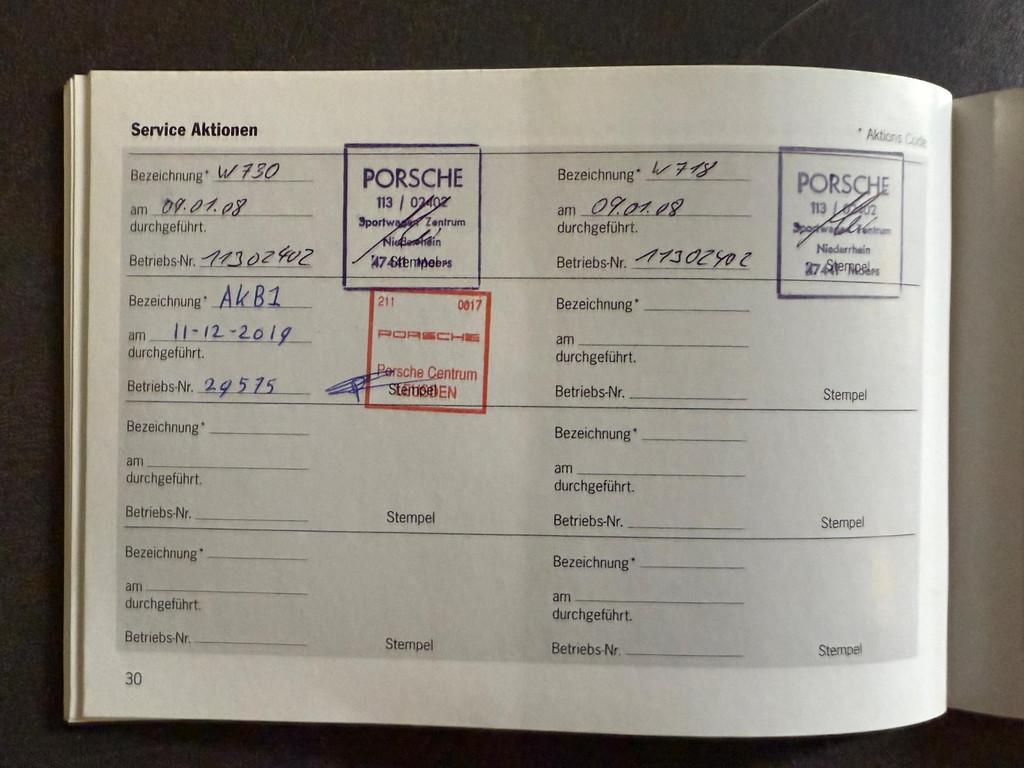 Service Aktionen
* Aktions Code
Bezeichnung* W730
am 09.01.08
durchgeführt.
Betriebs-Nr. 11302402
PORSCHE
113 / 02402
Sportwagen Zentrum
Niederrhein
47441 Moers
Stempel
Bezeichnung* W718
am 09.01.08
durchgeführt.
Betriebs-Nr. 11302402
PORSCHE
113 / 02402
Sportwagen Zentrum
Niederrhein
47441 Moers
Stempel
Bezeichnung* AKB1
am 11-12-2019
durchgeführt.
Betriebs-Nr. 29575
211 0017
PORSCHE
Porsche Centrum
Stempel
Bezeichnung*
am
durchgeführt.
Betriebs-Nr.
Stempel
Bezeichnung*
am
durchgeführt.
Betriebs-Nr.
Stempel
Bezeichnung*
am
durchgeführt.
Betriebs-Nr.
Stempel
Bezeichnung*
am
durchgeführt.
Betriebs-Nr.
Stempel
Bezeichnung*
am
durchgeführt.
Betriebs-Nr.
Stempel
30